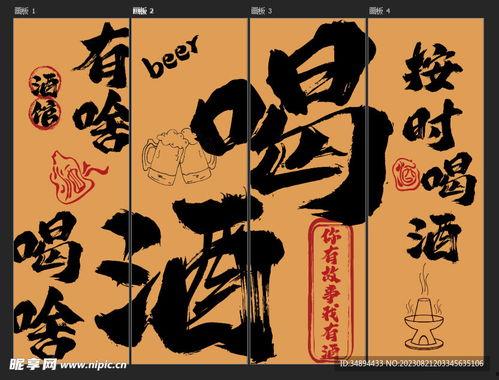 画板 1
画板 2
画板 3
画板 4
有啥
喝啥
酒馆
beer
喝酒
你有故事我有酒
按时喝酒
酒
昵享网 www.nipic.cn
ID:34894433 NO:20230821203345635106